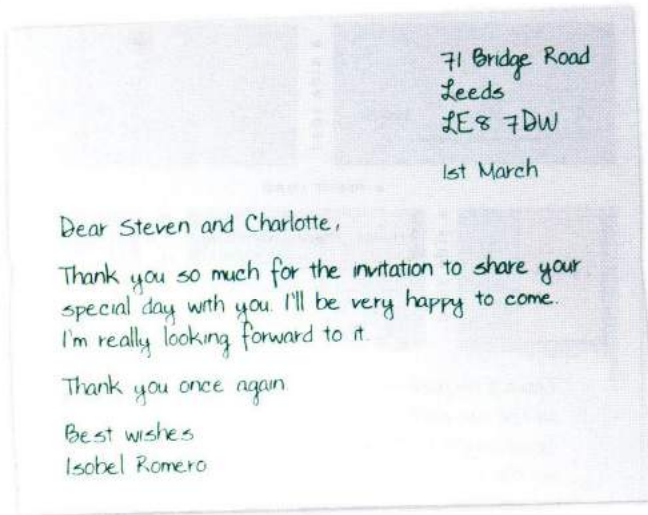 71 Bridge Road
Leeds
LE8 7DW
1st March
Dear Steven and Charlotte,
Thank you so much for the invitation to share your
special day with you. I'll be very happy to come.
I'm really looking forward to it.
Thank you once again.
Best wishes
Isobel Romero